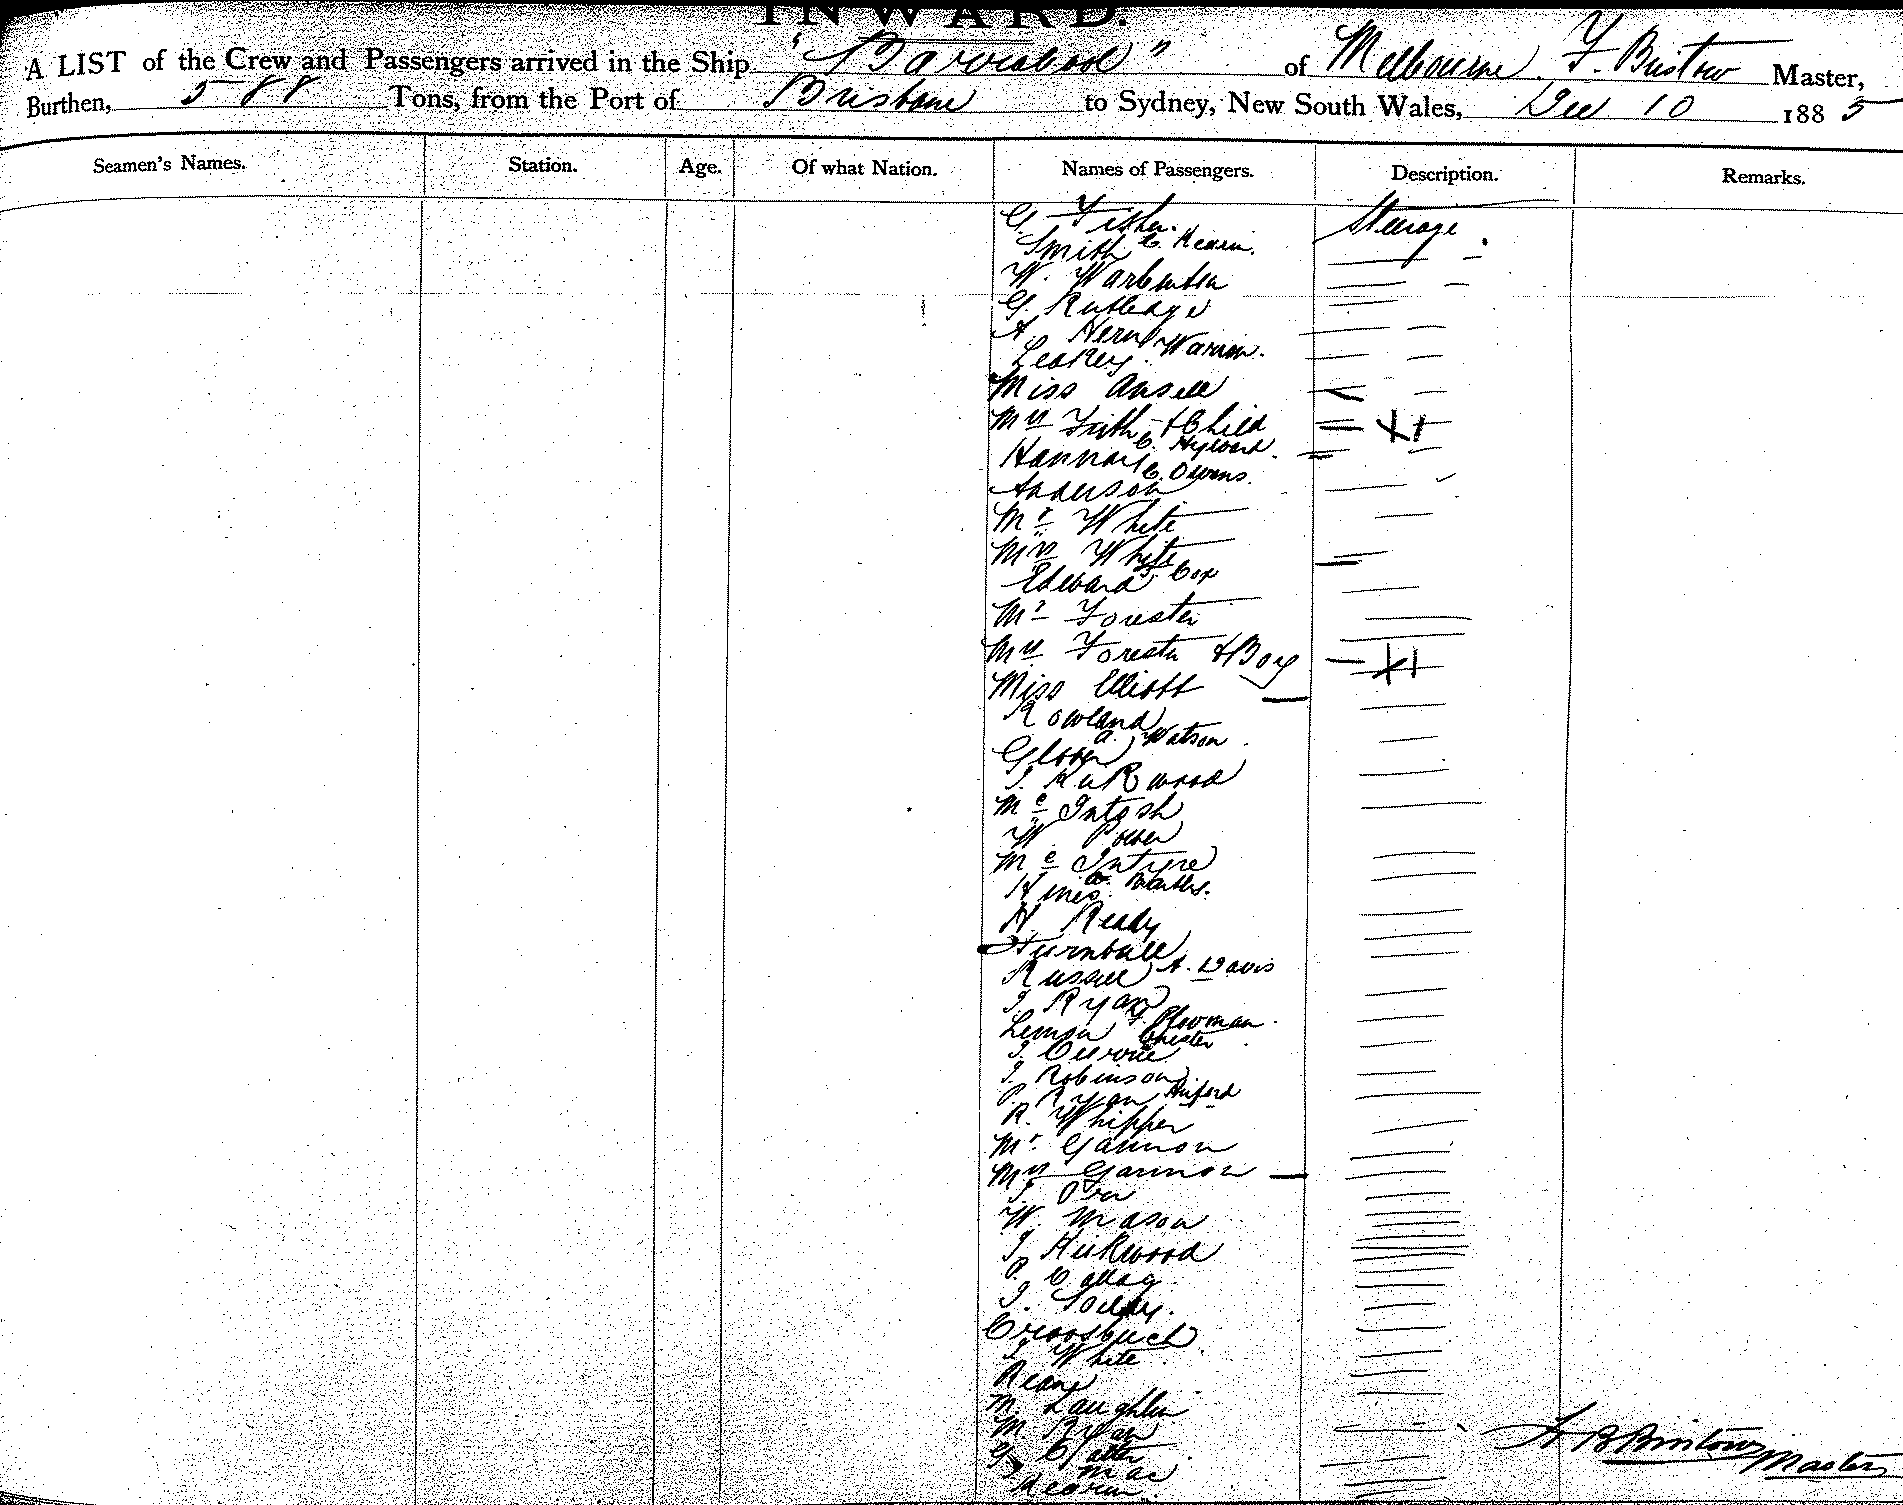 INWARD.
A LIST of the Crew and Passengers arrived in the Ship "Barrabool" of Melbourne. F. Bristow Master,
Burthen, 588 Tons, from the Port of Brisbane to Sydney, New South Wales, Dec 10 1885
Seamen's Names. Station. Age. Of what Nation. Names of Passengers. Description. Remarks.
G. Fisher. Steerage.
Smith C. Hearn.
W. Warburton
G. Rutledge
A. Hern
Leakey. Warren.
Miss Ansell
Mrs Frith & Child
Hannay C. Hayward.
Anderson C. Owens.
Mr White
Mrs White
Edward Cox
Mr Forester
Mrs Forester & Boy
Miss Elliott
Rowland
Glover A. Watson.
J. Kirkwood
Mc Intosh
W. Power
Mc Intyre
Hines.
H Ready
Turnbull
Russell A. Davis
J. Ryan
Lemon Plowman.
J. Chester
J. Robinson
P. Ryan
R. Whipper
Mr. Gannon
Mrs Gannon
J. Orr
W. Mason
J Kirkwood
P.
J.
J. White
M. Laughlin
M Ryan
G.
Hearn
H B Bristow
Master